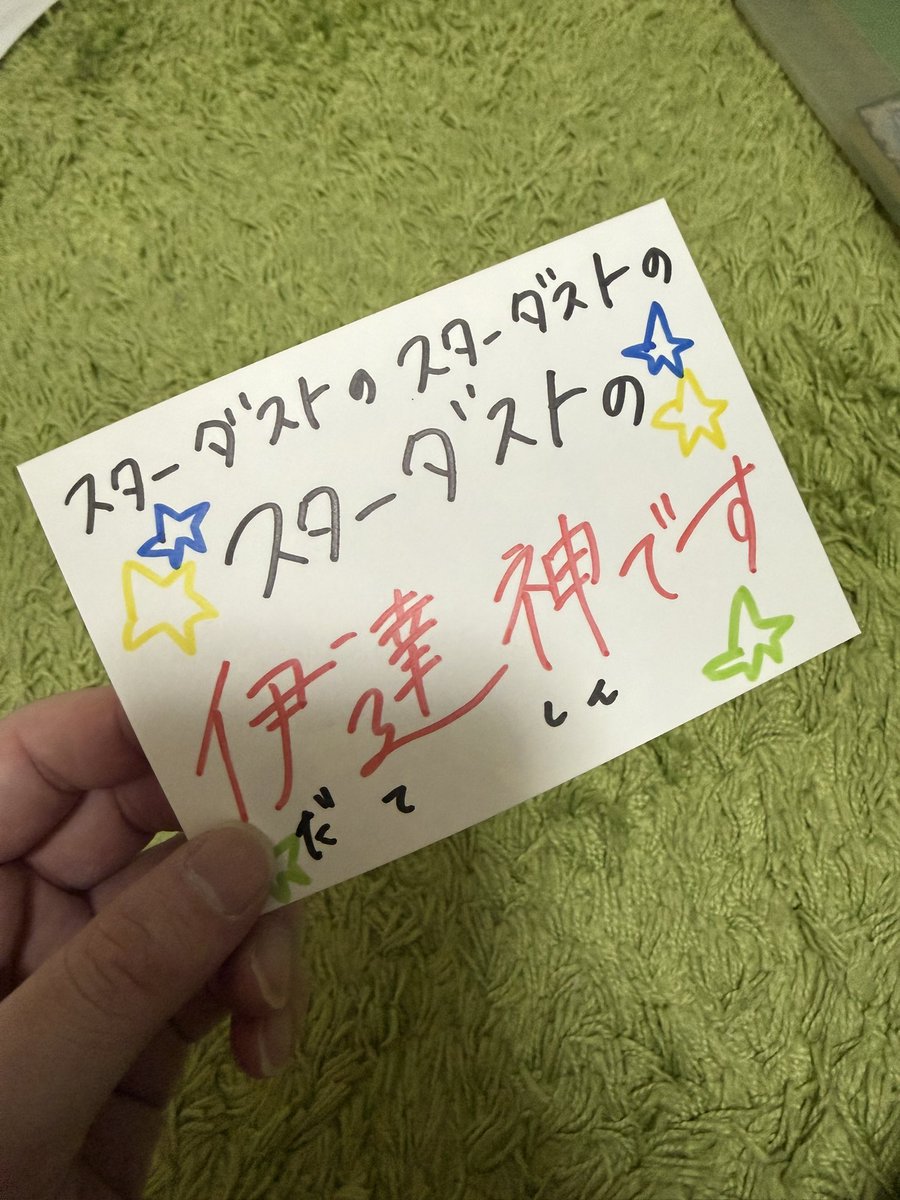 スターダストのスターダストの
スターダストの
伊達神です
だて しん